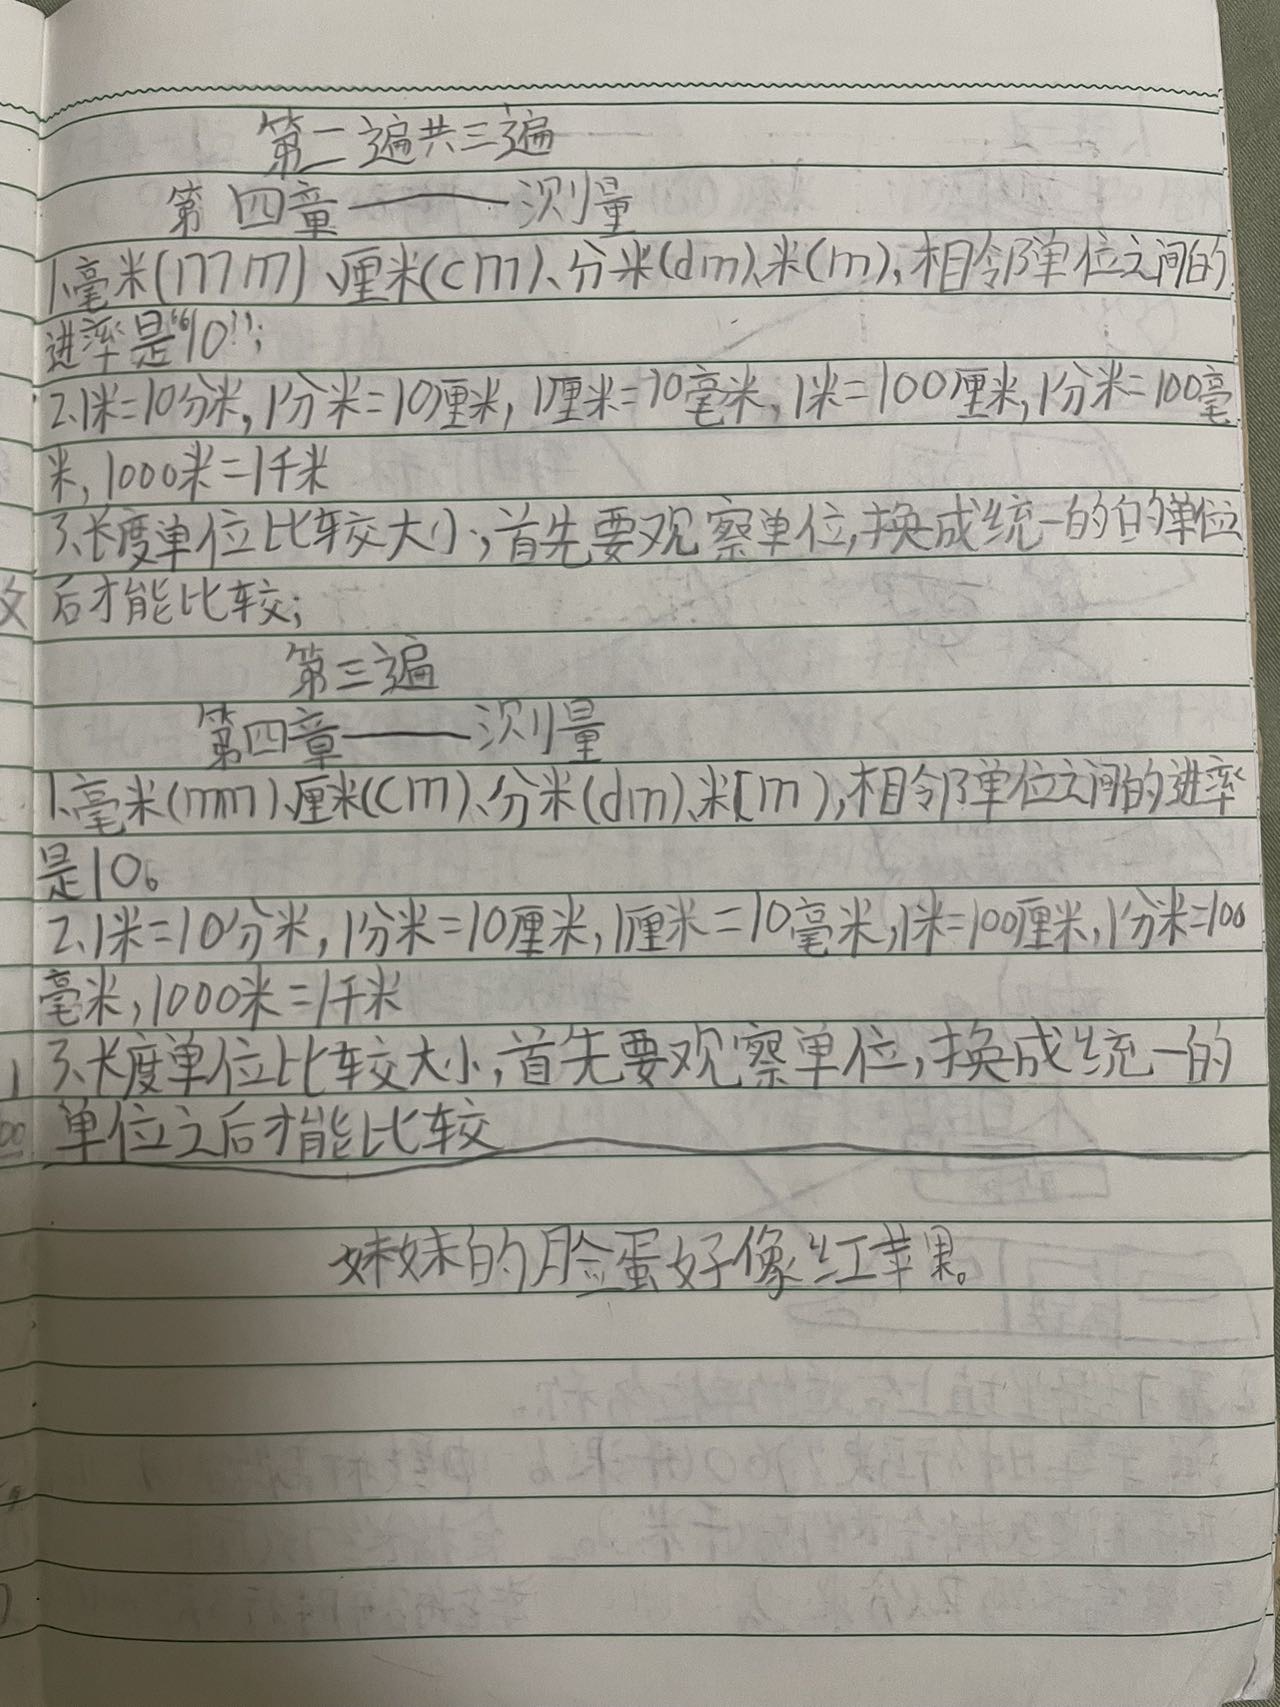 第二遍共三遍
第四章——测量
1、毫米(mm)、厘米(cm)、分米(dm)、米(m),相邻单位之间的
进率是“10”;
2、1米=10分米,1分米=10厘米,1厘米=10毫米,1米=100厘米,1分米=100毫
米,1000米=1千米
3、长度单位比较大小,首先要观察单位,换成统一的的单位
后才能比较;
第三遍
第四章——测量
1、毫米(mm)、厘米(cm)、分米(dm)、米[m),相邻单位之间的进率
是10。
2、1米=10分米,1分米=10厘米,1厘米=10毫米,1米=100厘米,1分米=100
毫米,1000米=1千米
3、长度单位比较大小,首先要观察单位,换成统一的
单位之后才能比较
妹妹的脸蛋好像红苹果。